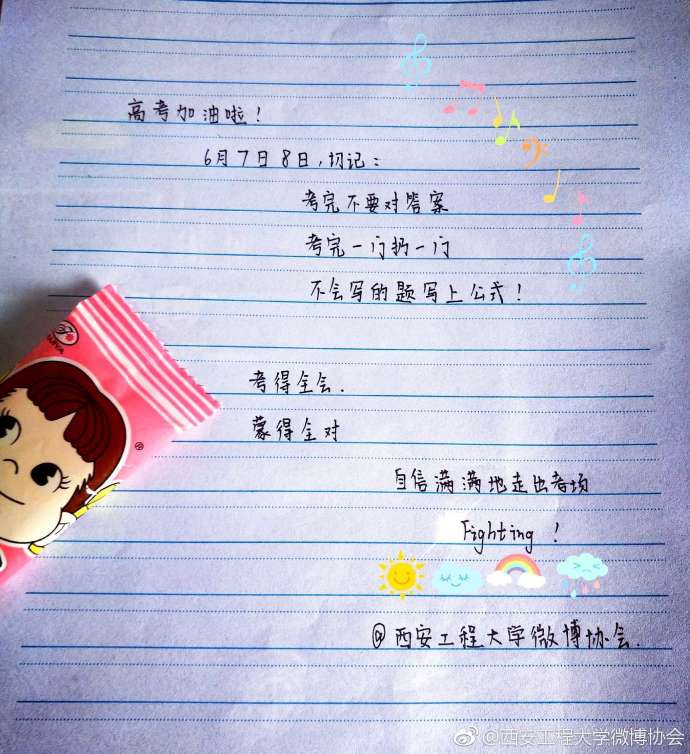 高考加油啦!
6月7日8日,切记:
考完不要对答案
考完一门扔一门
不会写的题写上公式!
考得全会.
蒙得全对
自信满满地走出考场
Fighting!
@西安工程大学微博协会.
@西安工程大学微博协会